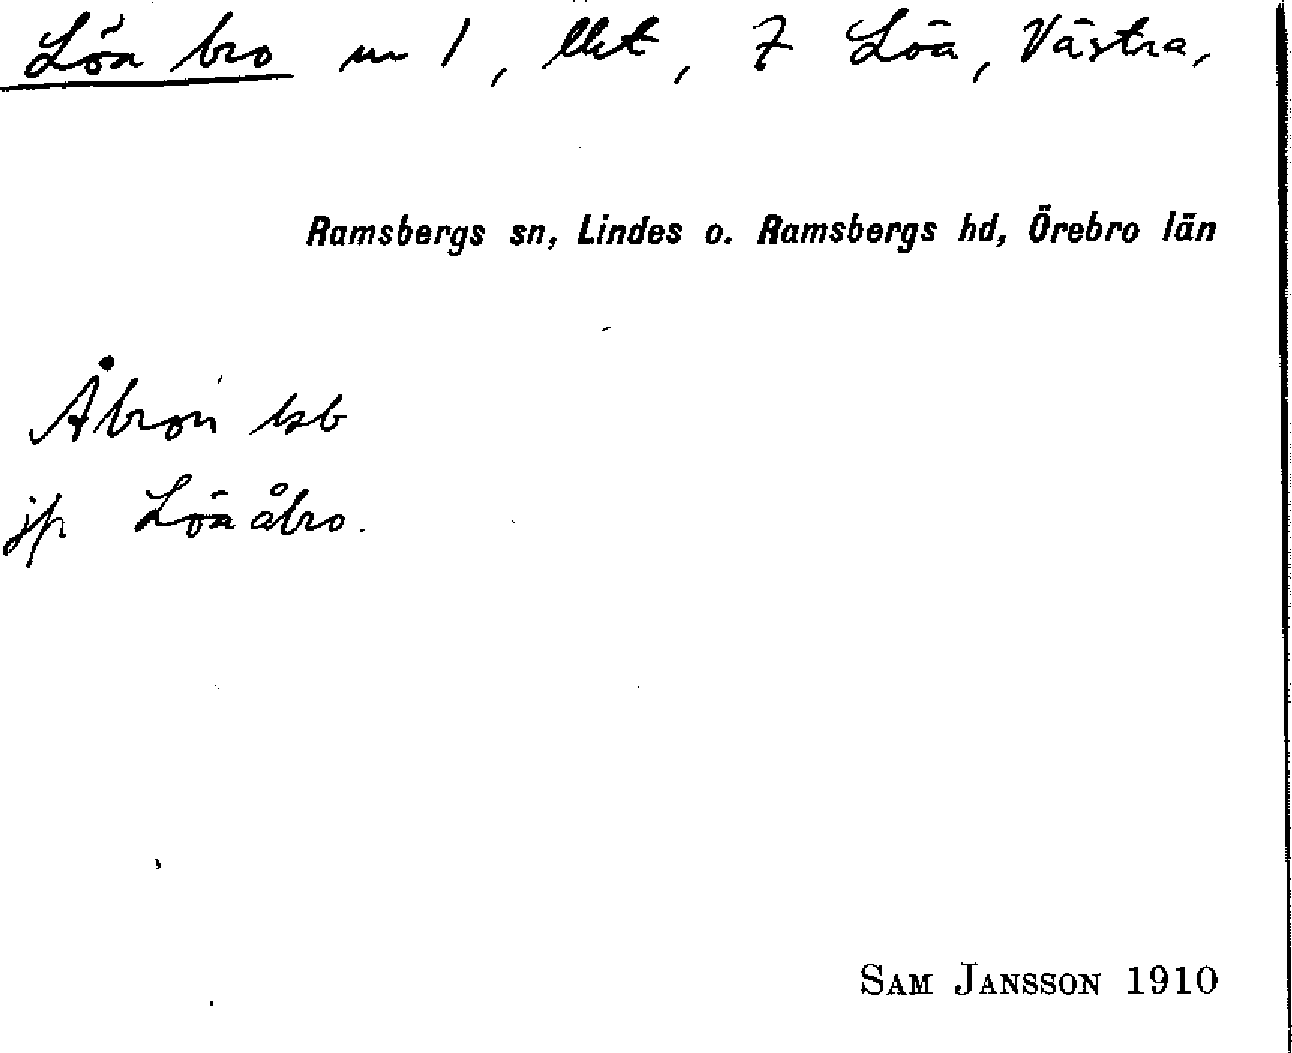 Löa bro nr 1, llkt, 7 Löa, Västra,
Ramsbergs sn, Lindes o. Ramsbergs hd, Örebro län
Åbron
jfr Löa åbro.
SAM JANSSON 1910